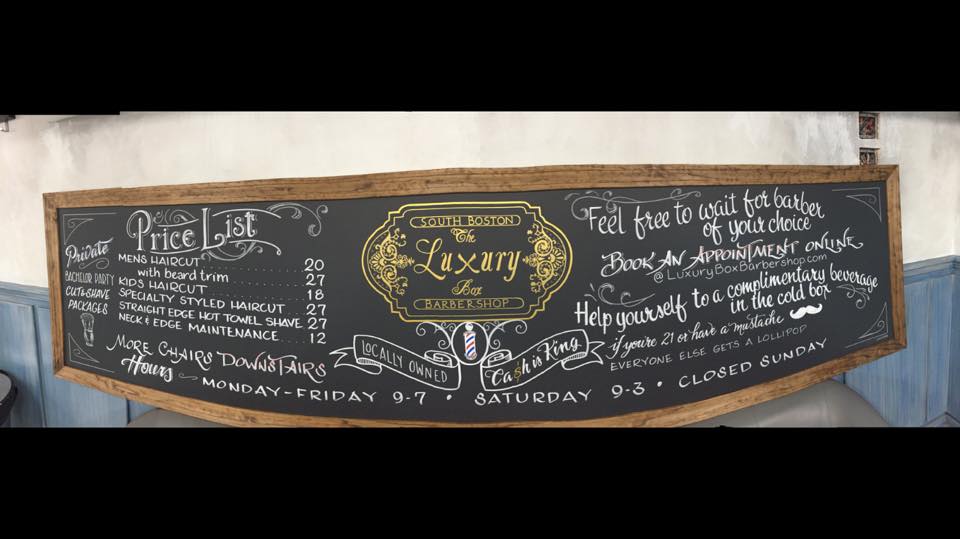 Price List
Private
BACHELOR PARTY
CUT & SHAVE
PACKAGES
MENS HAIRCUT 20
with beard trim 27
KIDS HAIRCUT 18
SPECIALTY STYLED HAIRCUT 27
STRAIGHT EDGE HOT TOWEL SHAVE 27
NECK & EDGE MAINTENANCE 12
MORE CHAIRS DOWNSTAIRS
SOUTH BOSTON
The
Luxury
Box
BARBERSHOP
LOCALLY OWNED
Ca$h is King
Feel free to wait for barber
of your choice
BOOK AN APPOINTMENT ONLINE
@LuxuryBoxBarbershop.com
Help yourself to a complimentary beverage
in the cold box
if you're 21 or have a mustache
EVERYONE ELSE GETS A LOLLIPOP
Hours
MONDAY-FRIDAY 9-7 • SATURDAY 9-3 • CLOSED SUNDAY